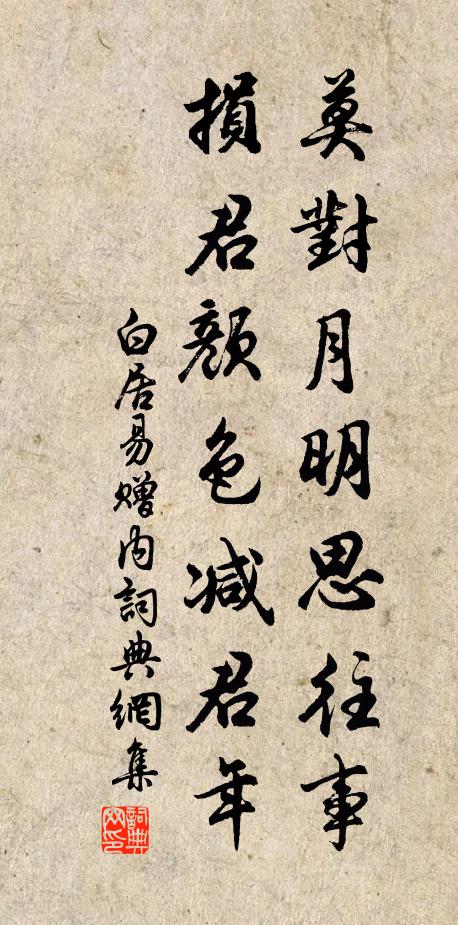 莫對月明思往事
損君顏色減君年
白居易贈内詞典網集
詞典
网印